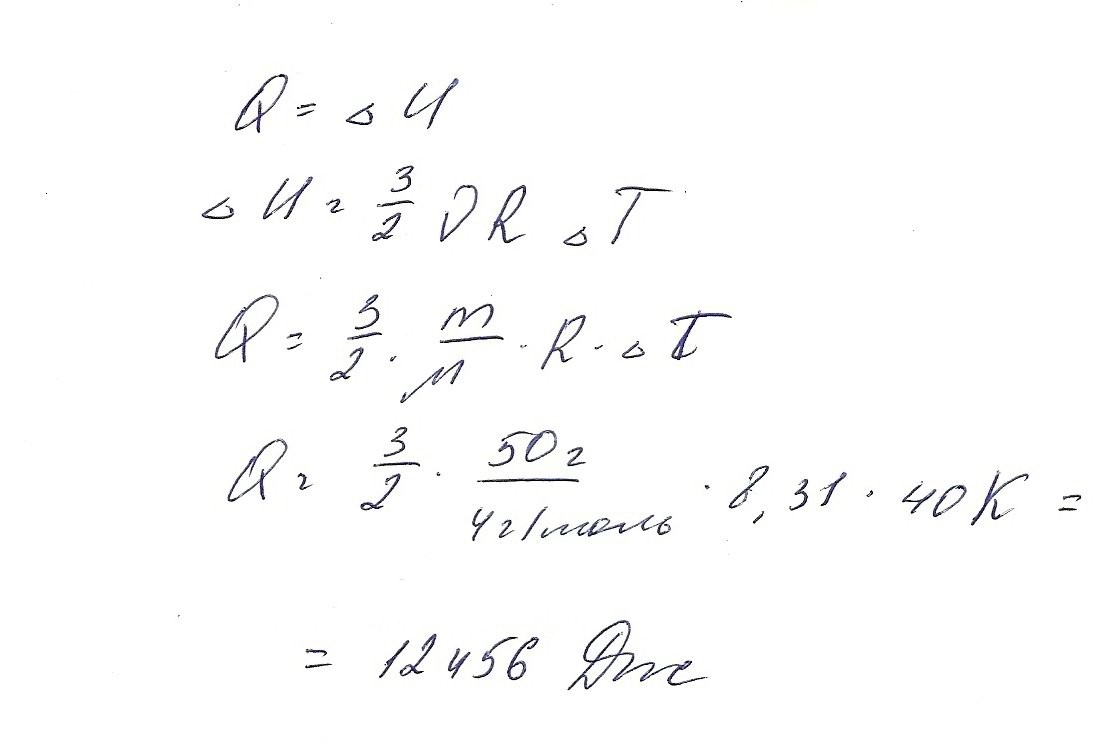 Q = ΔU
ΔU = 3/2 νR ΔT
Q = 3/2 · m/M · R · ΔT
Q = 3/2 · 50г/4г/моль · 8,31 · 40K =
= 12456 Дж